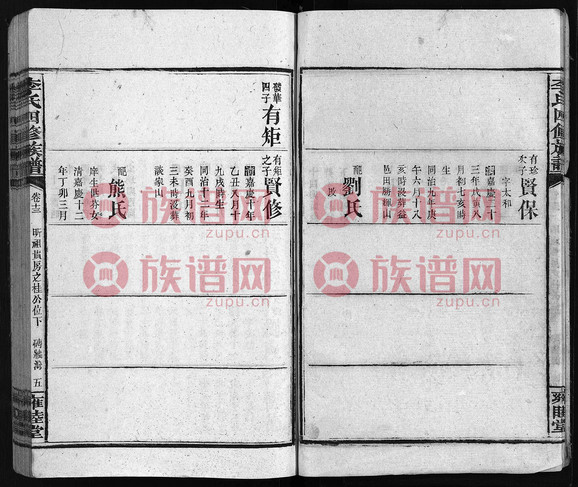 李氏四修族譜
雍睦堂
有珍
次子
賢保
字太和
嘉慶二十
三年戊寅八
月初七亥時
同治九年庚
午六月十八
亥時没葬
邑田
配
劉氏
没
發華
四子
有矩
有矩
之子
賢修
嘉慶十
乙丑八月十
九戌時生
同治十二年
癸酉九月初
三未時没葬
談家山
配
熊氏
庠生 女
清嘉慶十二
年丁卯三月
李氏四修族譜
卷十三
昕祖貴房之桂公位下
五
雍睦堂
族谱网
zupu.cn
族谱网
zupu.cn
族谱网
zupu.cn
族谱网
zupu.cn